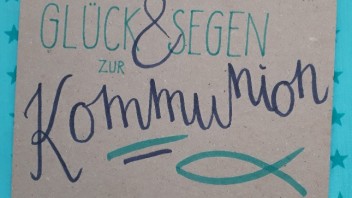 GLÜCK & SEGEN
ZUR
Kommunion